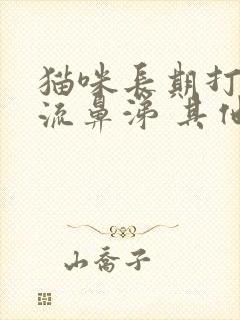 猫咪長期打
流鼻涕 其他
山喬子